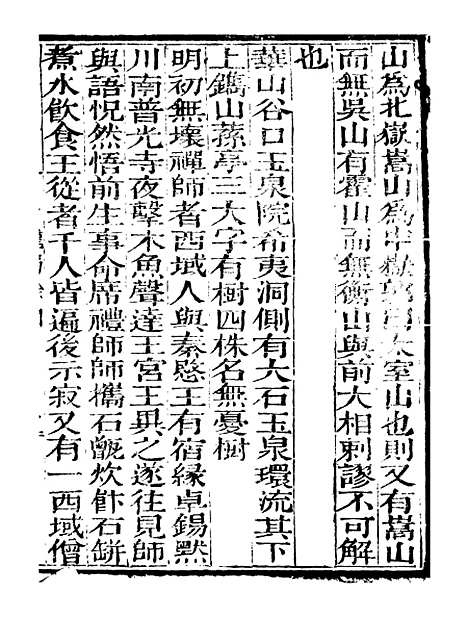 山為北嶽嵩山為中嶽郭云大室山也則又有嵩山
而無吳山有霍山而無衡山與前大相剌謬不可解
也
華山谷口玉泉院希夷洞側有大石玉泉環流其下
上鐫山蓀亭三大字有樹四株名無憂樹
明初無壞禪師者西域人與秦愍王有宿緣卓錫㸃
川南普光寺夜擊木魚聲達王宮王異之遂往見師
與語怳然悟前生事命席禮師師攜石甑炊飰石缾
煮水飲食王從者千人皆遍後示寂又有一西域僧